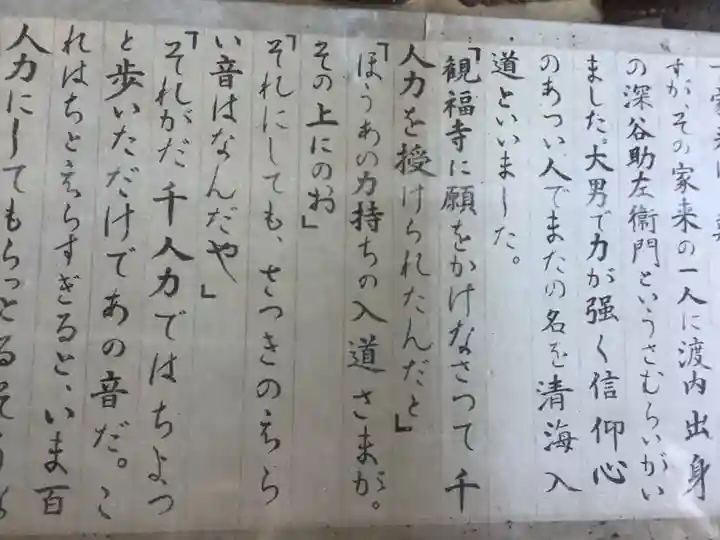 すが、その家来の一人に渡内出身
の深谷助左衛門というさむらいがい
ました。大男で力が強く信仰心
のあつい人でまたの名を清海入
道といいました。
「観福寺に願をかけなさつて千
人力を授けられたんだと」
「ほうあの力持ちの入道さまが。
その上にのお」
「それにしても、さつきのえら
い音はなんだや」
「それがだ千人力ではちよつ
と歩いただけであの音だ。こ
れはちとえらすぎると、いま百
人力にしてもらっとるそうな